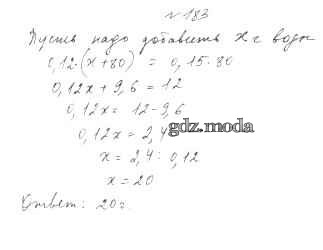 № 183
Пусть надо добавить x г воды
0,12·(x+80) = 0,15·80
0,12x + 9,6 = 12
0,12x = 12-9,6
0,12x = 2,4
gdz.moda
x = 2,4 : 0,12
x = 20
Ответ: 20 г.